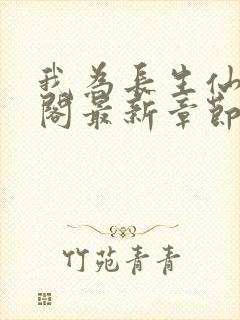 我為長生仙
閣最新章節
竹苑青青